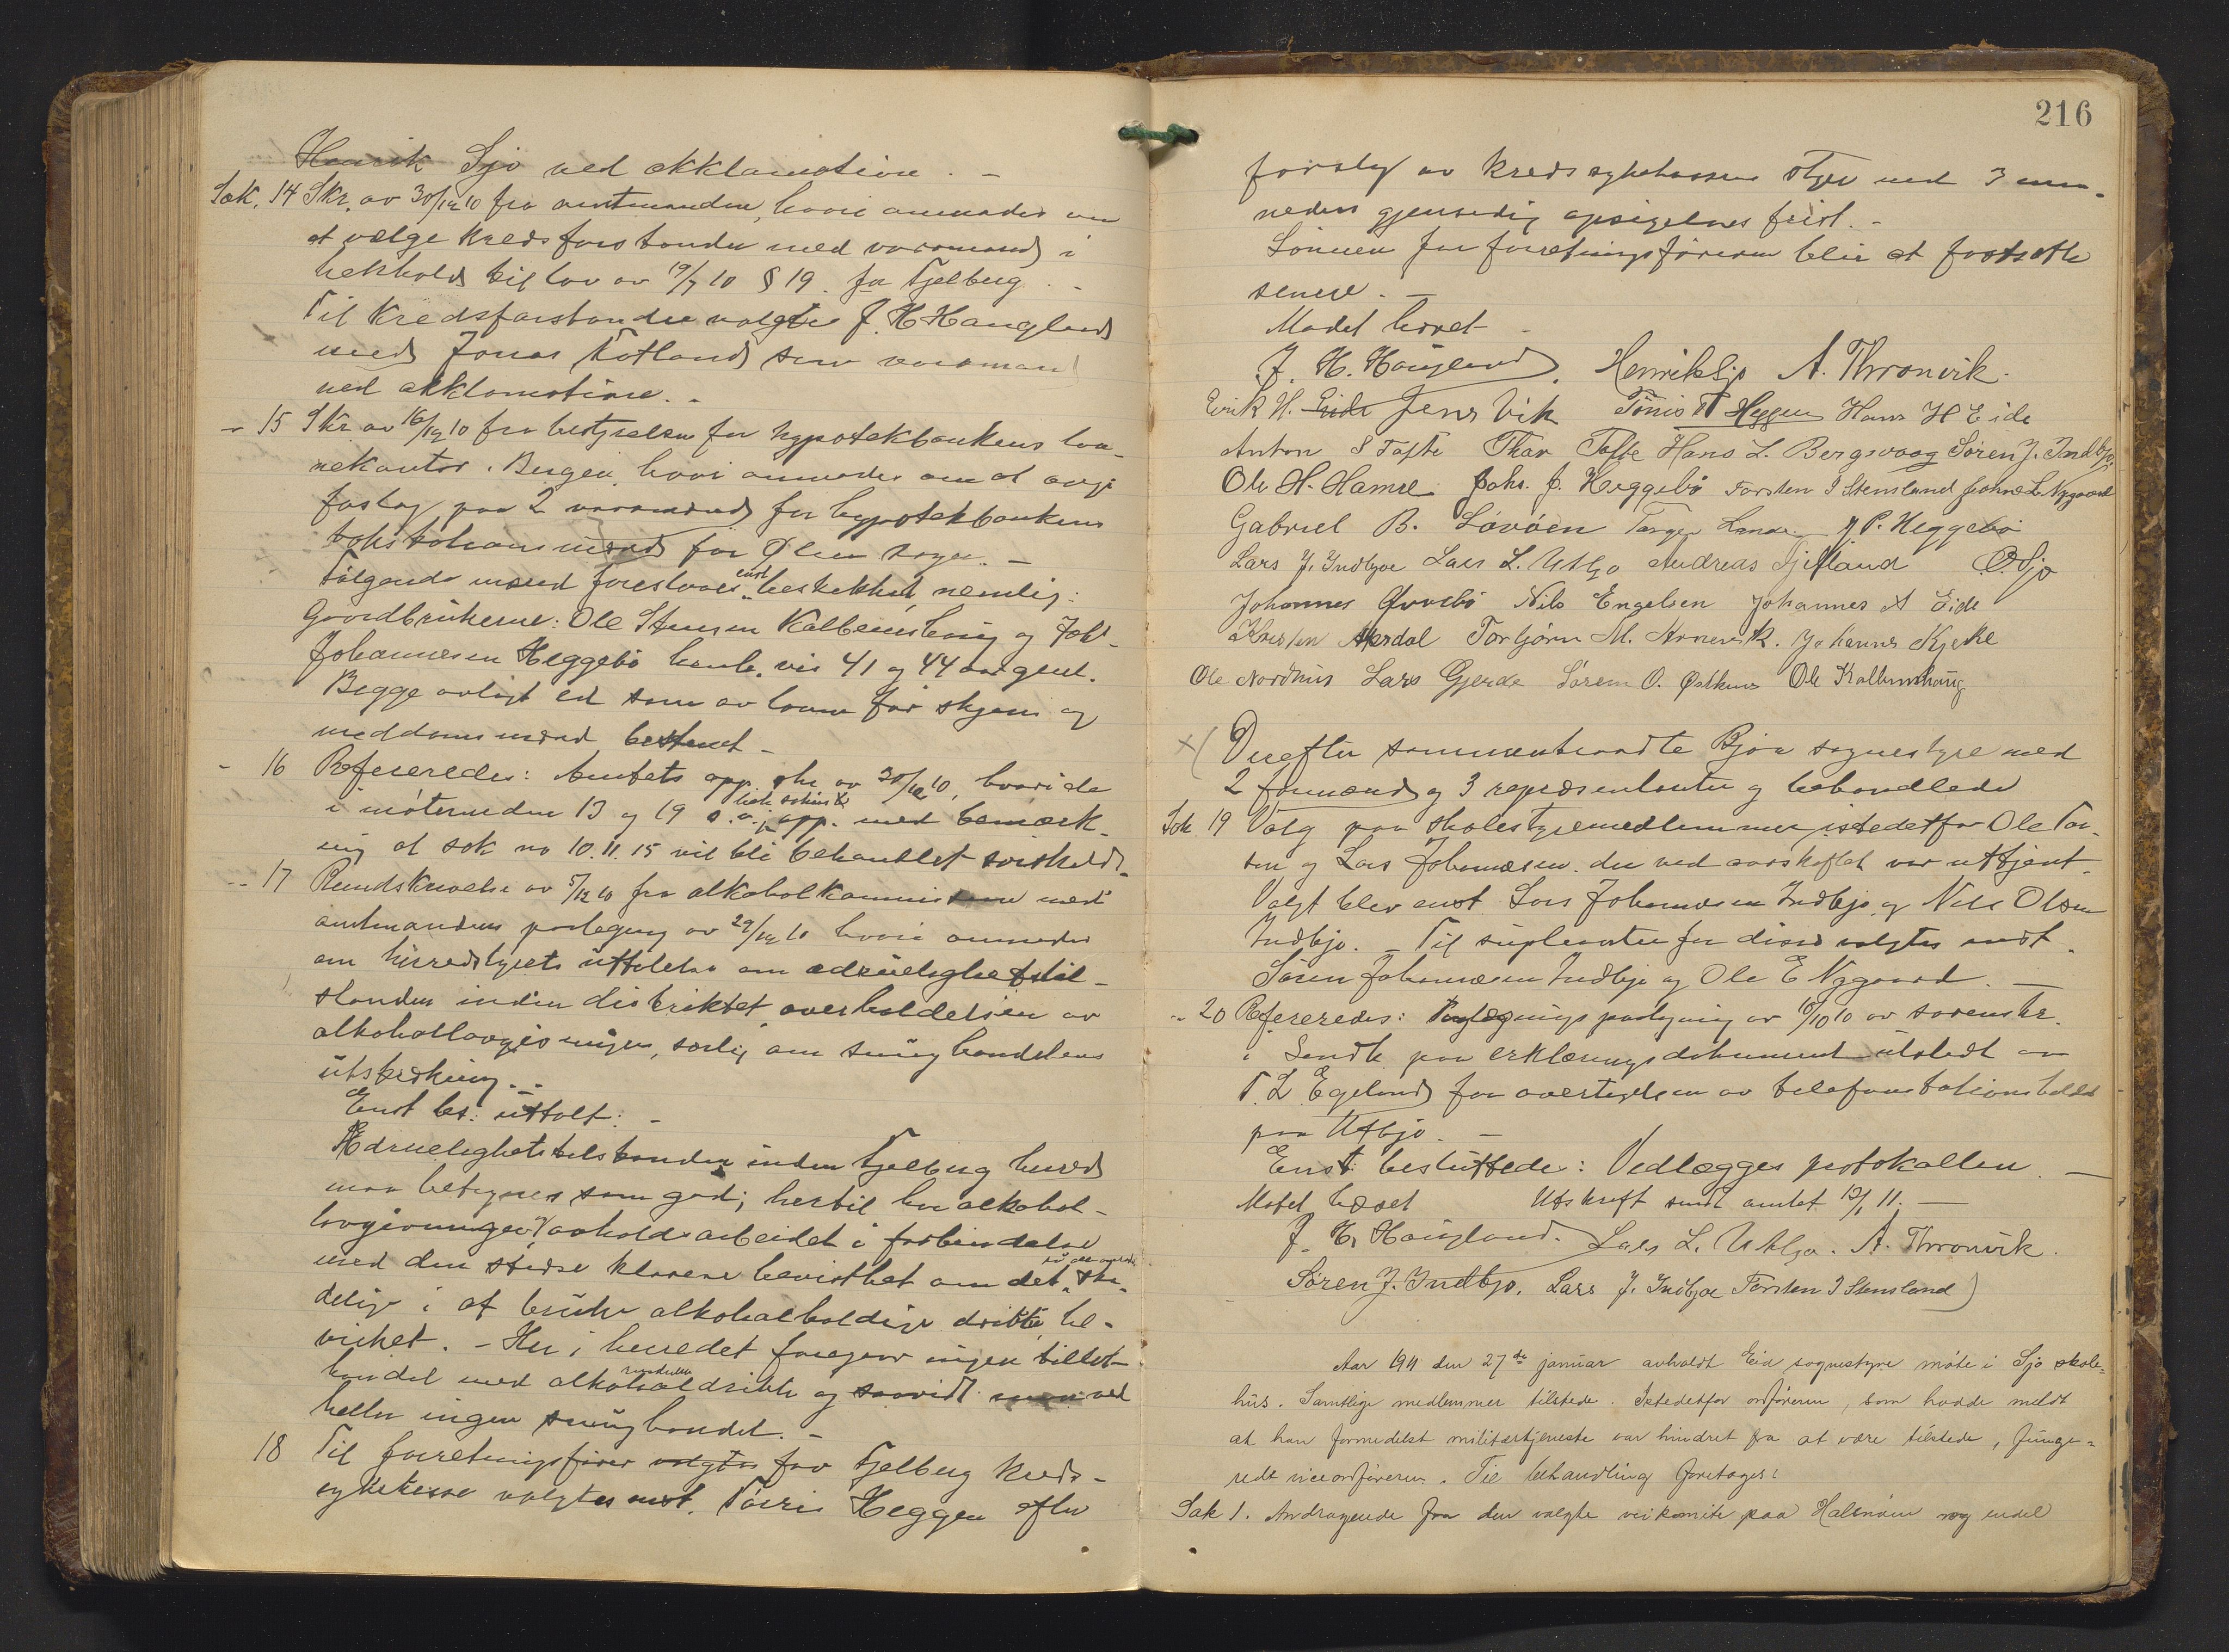 Henrik Sjo ved akklamation. –
Sak. 14 Skr. av 30/12 10 fra amtmanden, hvori anmodes om
at vælge kredsforstander med varamand i
henhold til lov av 19/7 10 § 19. for Fjelberg. –
Til Kredsforstander valgtes J. H. Haugland
med Jonas Totland som varamand
ved akklamation. –
– 15 Skr av 16/12 10 fra bestyrelsen for hypotekbankens laa-
nekontor. Bergen, hvori anmodes om at avgi
forslag paa 2 varamænd for hypotekbankens
takstmænd for Ølen sogn. –
Følgende mænd foreslaaes enst. beskikket, nemlig:
Gaardbrukerne: Ole Stensen Kalbeinshaug og Johs
Johannesen Heggebø henh.vis 41 og 44 aar gml.
Begge avlagt ed som av loven for skjøns og
meddomsmænd bestemt –
– 16 Refereredes: Amtets app. skr av 30/12 10, hvori de
i møterne den 13 og 19 s. a. app. med bemærk-
ing at sak no 10. 11. 15 vil bli behandlet særskildt.
– 17 Rundskrivelse av 5/12 10 fra alkoholkommissionen med
amtmandens paategning av 29/12 10 hvori anmodes
om herredstyrets uttalelse om ædruelighetstil-
standen inden distriktet overholdelsen av
alkohollovgivningen, særlig om smughandelens
utstrækning. –
Enst bes: uttalt: –
Ædruelighetstilstanden inden Fjelberg herred
maa betegnes som god; hertil har alkohol-
lovgivningen, avholdsarbeidet i forbindelse
med den stedse klarere bevissthet om det ska-
delige i at bruke alkoholholdige drikke, be-
virket. – Her i herredet foregaar ingen tillat
handel med alkoholdrikke og saavidt man ved
heller ingen smughandel. –
18 Til forretningsfører valgtes for Fjelberg Kreds-
sykekasse valgtes enst. Tønis Heggen efter
216
forslag av kredssykekassens styre med 3 maa-
neders gjensidig opsigelses frist. –
Lønnen for forretningsføreren blir at fastsætte
senere. –
Mødet hævet –
J. H. Haugland. Henrik Sjo A. Thronvik.
Eirik H. Eide Jens Vik Tönis T Heggen Hans H Eide
Anton S Tofte Thor Tofte Hans L. Bergsvaag Søren J. Indbjo,
Ole H. Hamre Johs. J. Heggebø Torsten J Stensland Johan L. Nygaard
Gabriel B. Løvøen Lande P. Heggebø
Lars J. Indbjoe Lars L. Utbjo Andreas Fjelland O. Sjo
Johannes Nils Engelsen Johannes A Eide
Kristen Aksdal Torbjørn M. Johannes Kjeke
Ole Nordhus Lars Gjerde Sørem O. Ole Kalbeinshaug
×( Derefter sammentraadte Bjoa sognestyre med
2 formænd og 3 repræsentanter og behandlede
Sak 19 Valg paa skolestyremedlemmer istedetfor Ole Tor-
sen og Lars Johannesen. der ved aarsskiftet var uttjent.
Valgt blev enst Lars Johannesen Indbjo og Nils Olsen
Indbjo. – Til suplenter for disse valgtes enst.
Søren Johannesen Indbjo og Ole E Nygaard. –
– 20 Refereredes: paategning av 10/10 10 av sorenskr.
i Søndh. paa erklæringsdokument utstedt av
T. L Egeland for overtagelsen av telefonstationsholdet
paa Utbjo. –
Enst: besluttedes: Vedlægges protokollen. –
Mødet hævet Utskrift sendt amtet 12/1 11. –
J. H. Haugland. Lars L. Utbjo. A. Thronvik.
Søren J. Indbjo. Lars J. Indbjoe Torsten J Stensland)
Aar 1911 den 27de januar avholdt Eid sognestyre møte i Sjo skole-
hus. Samtlige medlemmer tilstede. Istedetfor ordføreren, som hadde meldt
at han formedelst militærtjeneste var hindret fra at være tilstede, funge-
redt viceordføreren. Til behandling foretoges:
Sak 1. Andragende fra den valgte veikomite paa Halsnøen og endel